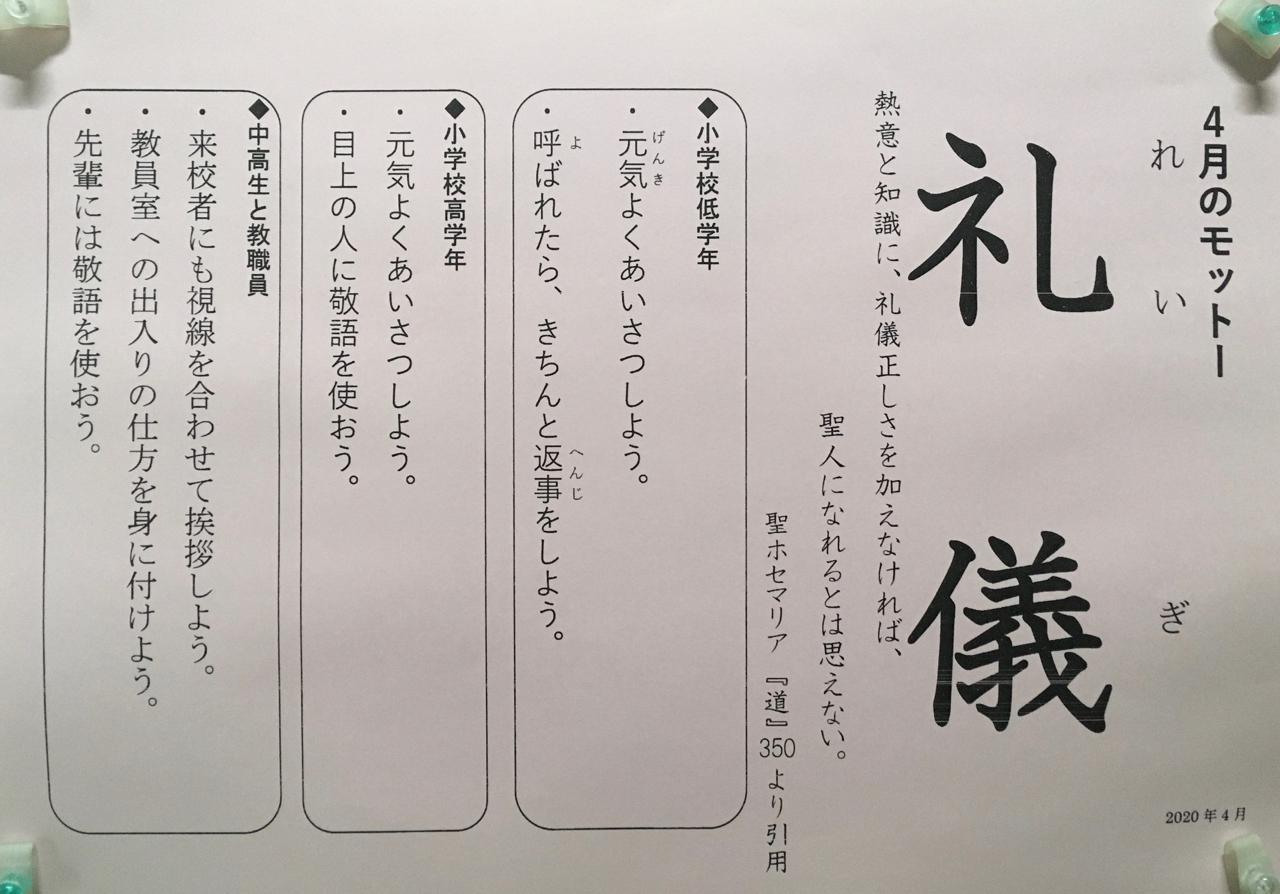 4月のモットー
れいぎ
礼儀
熱意と知識に、礼儀正しさを加えなければ、
聖人になれるとは思えない。
聖ホセマリア『道』350より引用
◆小学校低学年
げんき
・元気よくあいさつしよう。
よ へんじ
・呼ばれたら、きちんと返事をしよう。
◆小学校高学年
・元気よくあいさつしよう。
・目上の人に敬語を使おう。
◆中高生と教職員
・来校者にも視線を合わせて挨拶しよう。
・教員室への出入りの仕方を身に付けよう。
・先輩には敬語を使おう。
2020年4月